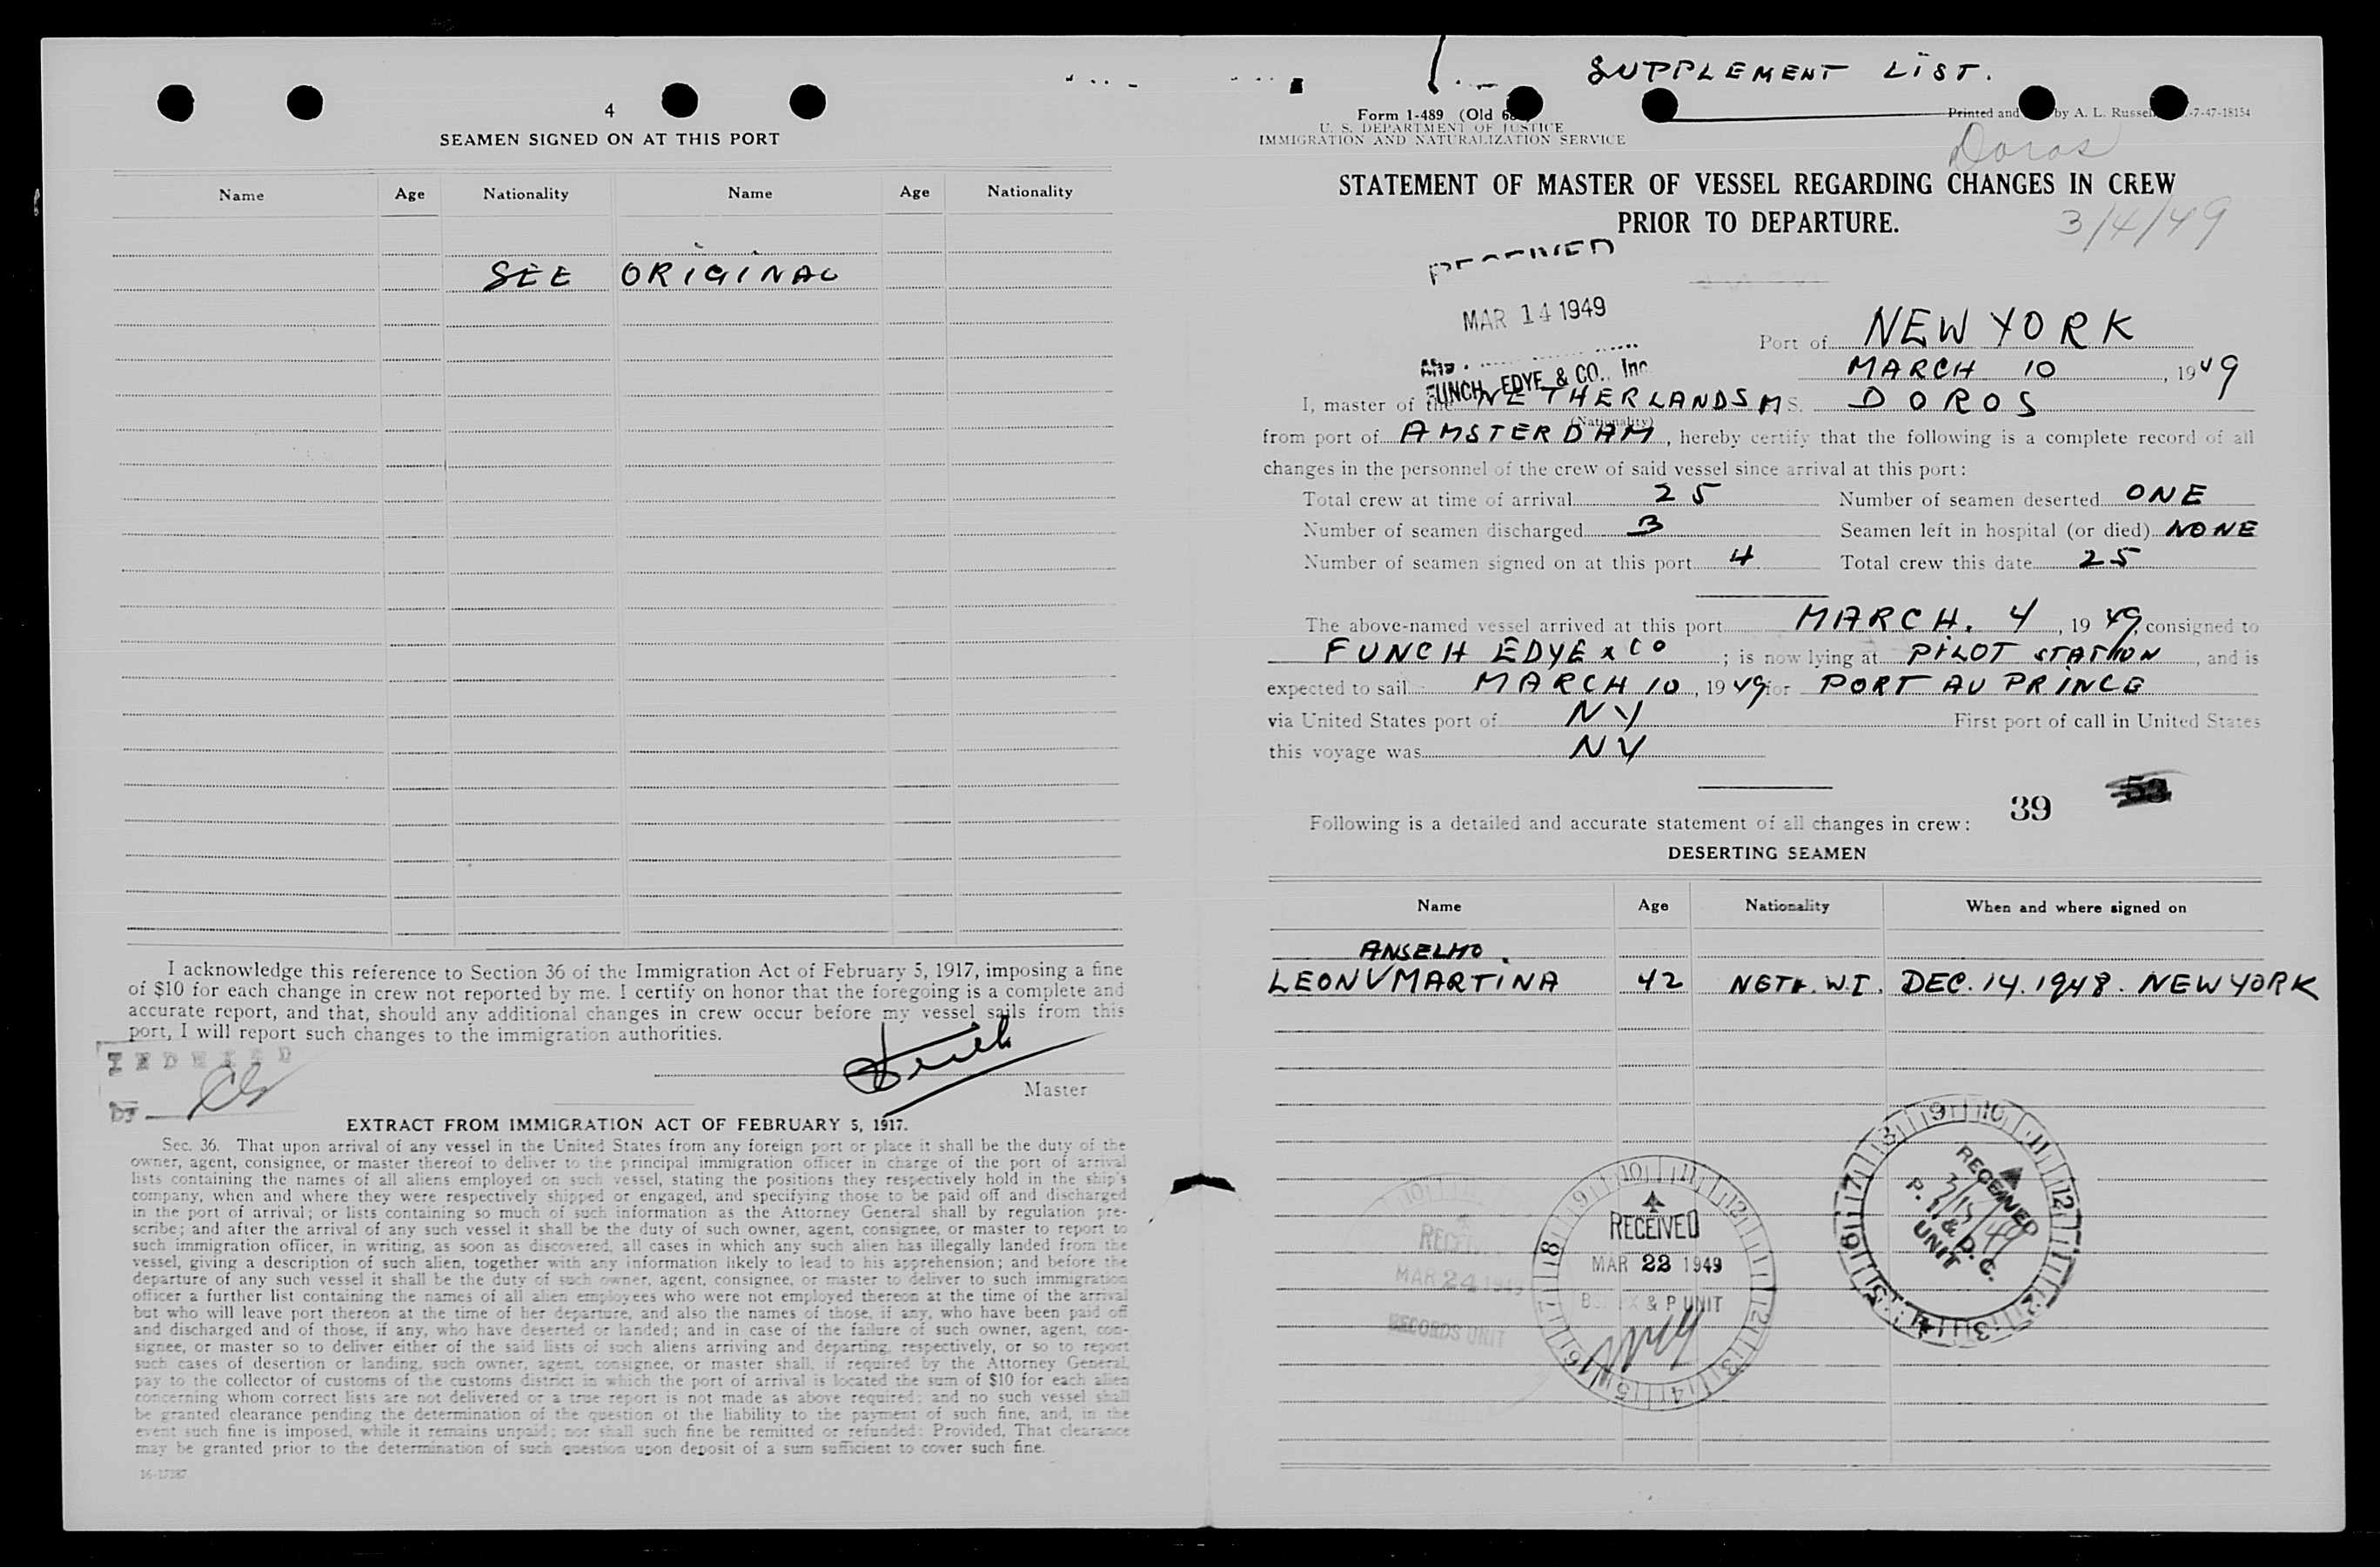 4
SEAMEN SIGNED ON AT THIS PORT
Name Age Nationality Name Age Nationality
SEE ORIGINAL
I acknowledge this reference to Section 36 of the Immigration Act of February 5, 1917, imposing a fine
of $10 for each change in crew not reported by me. I certify on honor that the foregoing is a complete and
accurate report, and that, should any additional changes in crew occur before my vessel sails from this
port, I will report such changes to the immigration authorities.
INDEXED
BY
Master
EXTRACT FROM IMMIGRATION ACT OF FEBRUARY 5, 1917.
Sec. 36. That upon arrival of any vessel in the United States from any foreign port or place it shall be the duty of the
owner, agent, consignee, or master thereof to deliver to the principal immigration officer in charge of the port of arrival
lists containing the names of all aliens employed on such vessel, stating the positions they respectively hold in the ship's
company, when and where they were respectively shipped or engaged, and specifying those to be paid off and discharged
in the port of arrival; or lists containing so much of such information as the Attorney General shall by regulation pre-
scribe; and after the arrival of any such vessel it shall be the duty of such owner, agent, consignee, or master to report to
such immigration officer, in writing, as soon as discovered, all cases in which any such alien has illegally landed from the
vessel, giving a description of such alien, together with any information likely to lead to his apprehension; and before the
departure of any such vessel it shall be the duty of such owner, agent, consignee, or master to deliver to such immigration
officer a further list containing the names of all alien employees who were not employed thereon at the time of the arrival
but who will leave port thereon at the time of her departure, and also the names of those, if any, who have been paid off
and discharged and of those, if any, who have deserted or landed; and in case of the failure of such owner, agent, con-
signee, or master so to deliver either of the said lists of such aliens arriving and departing, respectively, or so to report
such cases of desertion or landing, such owner, agent, consignee, or master shall, if required by the Attorney General,
pay to the collector of customs of the customs district in which the port of arrival is located the sum of $10 for each alien
concerning whom correct lists are not delivered or a true report is not made as above required; and no such vessel shall
be granted clearance pending the determination of the question of the liability to the payment of such fine, and, in the
event such fine is imposed, while it remains unpaid; nor shall such fine be remitted or refunded: Provided, That clearance
may be granted prior to the determination of such question upon deposit of a sum sufficient to cover such fine.
16-17387
SUPPLEMENT LIST.
Form 1-489 (Old
Printed and by A. L. Russell -7-47-18154
U. S. DEPARTMENT OF JUSTICE
IMMIGRATION AND NATURALIZATION SERVICE
Doros
STATEMENT OF MASTER OF VESSEL REGARDING CHANGES IN CREW
PRIOR TO DEPARTURE.
3/4/49
RECEIVED
MAR 14 1949
FUNCH, EDYE & CO., Inc
Port of NEW YORK
MARCH 10, 1949
I, master of the NETHERLANDS M S. DOROS
(Nationality)
from port of AMSTERDAM, hereby certify that the following is a complete record of all
changes in the personnel of the crew of said vessel since arrival at this port:
Total crew at time of arrival 25 Number of seamen deserted ONE
Number of seamen discharged 3 Seamen left in hospital (or died) NONE
Number of seamen signed on at this port 4 Total crew this date 25
The above-named vessel arrived at this port MARCH. 4, 1949, consigned to
FUNCH EDYE & CO; is now lying at PILOT STATION, and is
expected to sail MARCH 10, 1949 for PORT AU PRINCE
via United States port of NY First port of call in United States
this voyage was NY
39 53
Following is a detailed and accurate statement of all changes in crew:
DESERTING SEAMEN
Name Age Nationality When and where signed on
ANSELMO.
LEON V MARTINA 42 NETH. W.I. DEC. 14. 1948. NEW YORK
RECEIVED
3/15/49
P. & D. C.
UNIT
RECEIVED
MAR 23 1949
& P UNIT
RECEIVED
MAR 24 1949
RECORDS UNIT